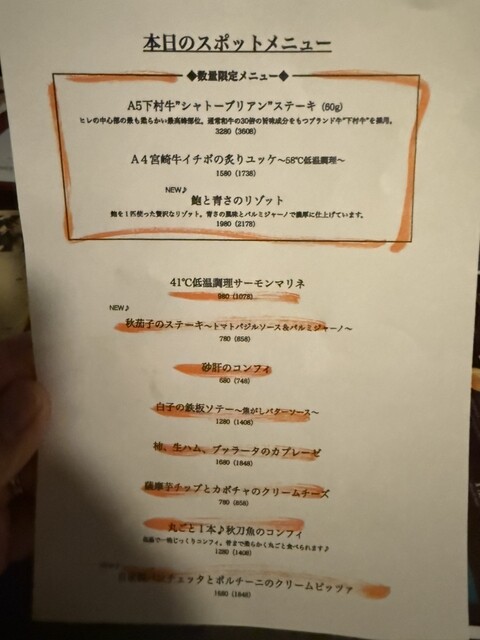 本日のスポットメニュー
◆数量限定メニュー◆
A5下村牛"シャトーブリアン"ステーキ (60g)
ヒレの中心部の最も柔らかい最高峰部位。通常和牛の30倍の旨味成分をもつブランド牛"下村牛"を採用。
3280 (3608)
A4宮崎牛イチボの炙りユッケ～58℃低温調理～
1580 (1738)
NEW♪
鮑と青さのリゾット
鮑を1匹使った贅沢なリゾット。青さの風味とパルミジャーノで濃厚に仕上げています。
1980 (2178)
41℃低温調理サーモンマリネ
980 (1078)
NEW♪
秋茄子のステーキ～トマトバジルソース&パルミジャーノ～
780 (858)
砂肝のコンフィ
680 (748)
白子の鉄板ソテー～焦がしバターソース～
1280 (1408)
柿、生ハム、ブッラータのカプレーゼ
1680 (1848)
薩摩芋チップとカボチャのクリームチーズ
780 (858)
丸ごと1本♪秋刀魚のコンフィ
低温で一晩じっくりコンフィ。骨まで柔らかく丸ごと食べられます♪
1280 (1408)
チェッタとポルチーニのクリームピッツァ
1680 (1848)